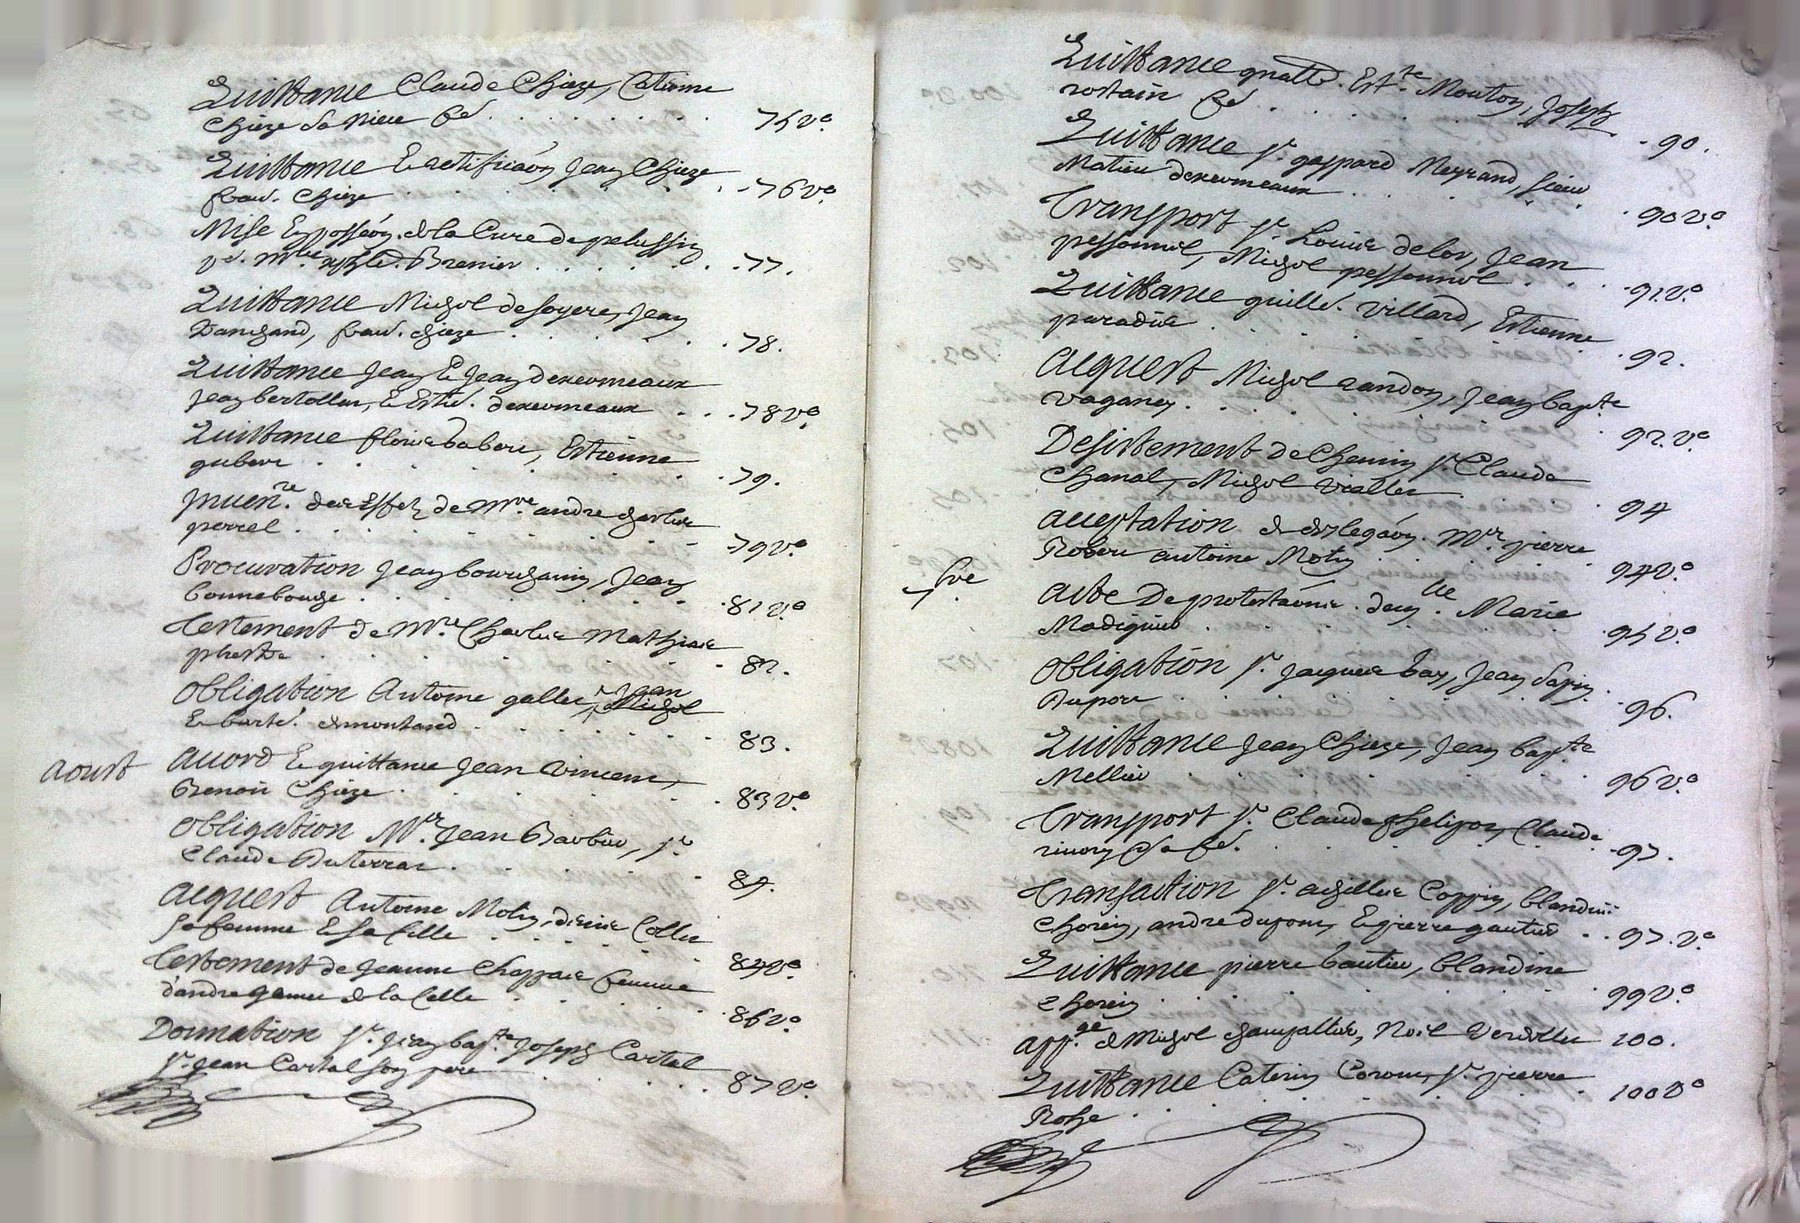 Quittance Claude Chieze, Catienne
Chieze sa niece fé. 75 vo.
Quittance & ratifica͠on Jean Chieze
fran. Chieze 76 vo.
Mise En posse͠on de la Cure de pelussin
Brenier 77.
Quittance Michel de soyere, Jean
Danchand, fran. chieze 78.
Quittance Jean & Jean devormeaux
Jean bertollen, & Este. devormeaux 78 vo.
Quittance florie dabon, Estienne
gubert 79.
Inven.re des Effetz de Mre andre charles
perrel 79 vo.
Procuration Jean bourchanin, Jean
bonnebouge 81 vo.
testement de Mre Charles Mathias
82.
Obligation Antoine galles, Jean
& de montand 83.
Aoust
Accord & quittance Jean Vincent,
Benoit Chieze 83 vo.
Obligation Mr. Jean Barbier, sr.
Claude Duterrar 84.
Acquest Antoine Motin, denise Collet
sa femme & sa fille 84 vo.
testement de Jeanne Chappas femme
d'andre de la Celle 86 vo.
Donnation sr. Jean bapte. Joseph Cartal
sr. Jean Cartal son pere 87 vo.
Quittance Est.ne Mouton, Joseph
rostain fé 90.
Quittance sr. gaspard Meyrand, sieur
Matieu devormeaux 90 vo.
Transport sr. Louis delor, Jean
pessonnel, Michel pessonnel 91 vo.
Quittance guille. Villard, Estienne
paradis 92.
Acquest Michel randon, Jean bapte
Vaganay 92 vo.
Desistement de Chemin sr. Claude
Chanal, Michel Viallet 94
Acceptation de delega͠on. Mr. pierre
Robert antoine Motin 94 vo.
7bre
Acte De protesta͠on Marie
Madignier 95 vo.
Obligation sr. Jacques bay, Jean Sapin
Dupon 96.
Quittance Jean Chieze, Jean bapte
Mellier 96 vo.
Transport sr. Claude Chelipon, Claude
rivory 97.
Transaction sr. achilles Coppin, blandine
Chorein, andre dupont, & pierre gautier 97 vo.
Quittance pierre bautier, blandine
Chorein 99 vo.
app.ge de Michel champallier, Noël Verdellet 100.
Quittance Caterin Coron, sr. pierre
Roche 100 vo